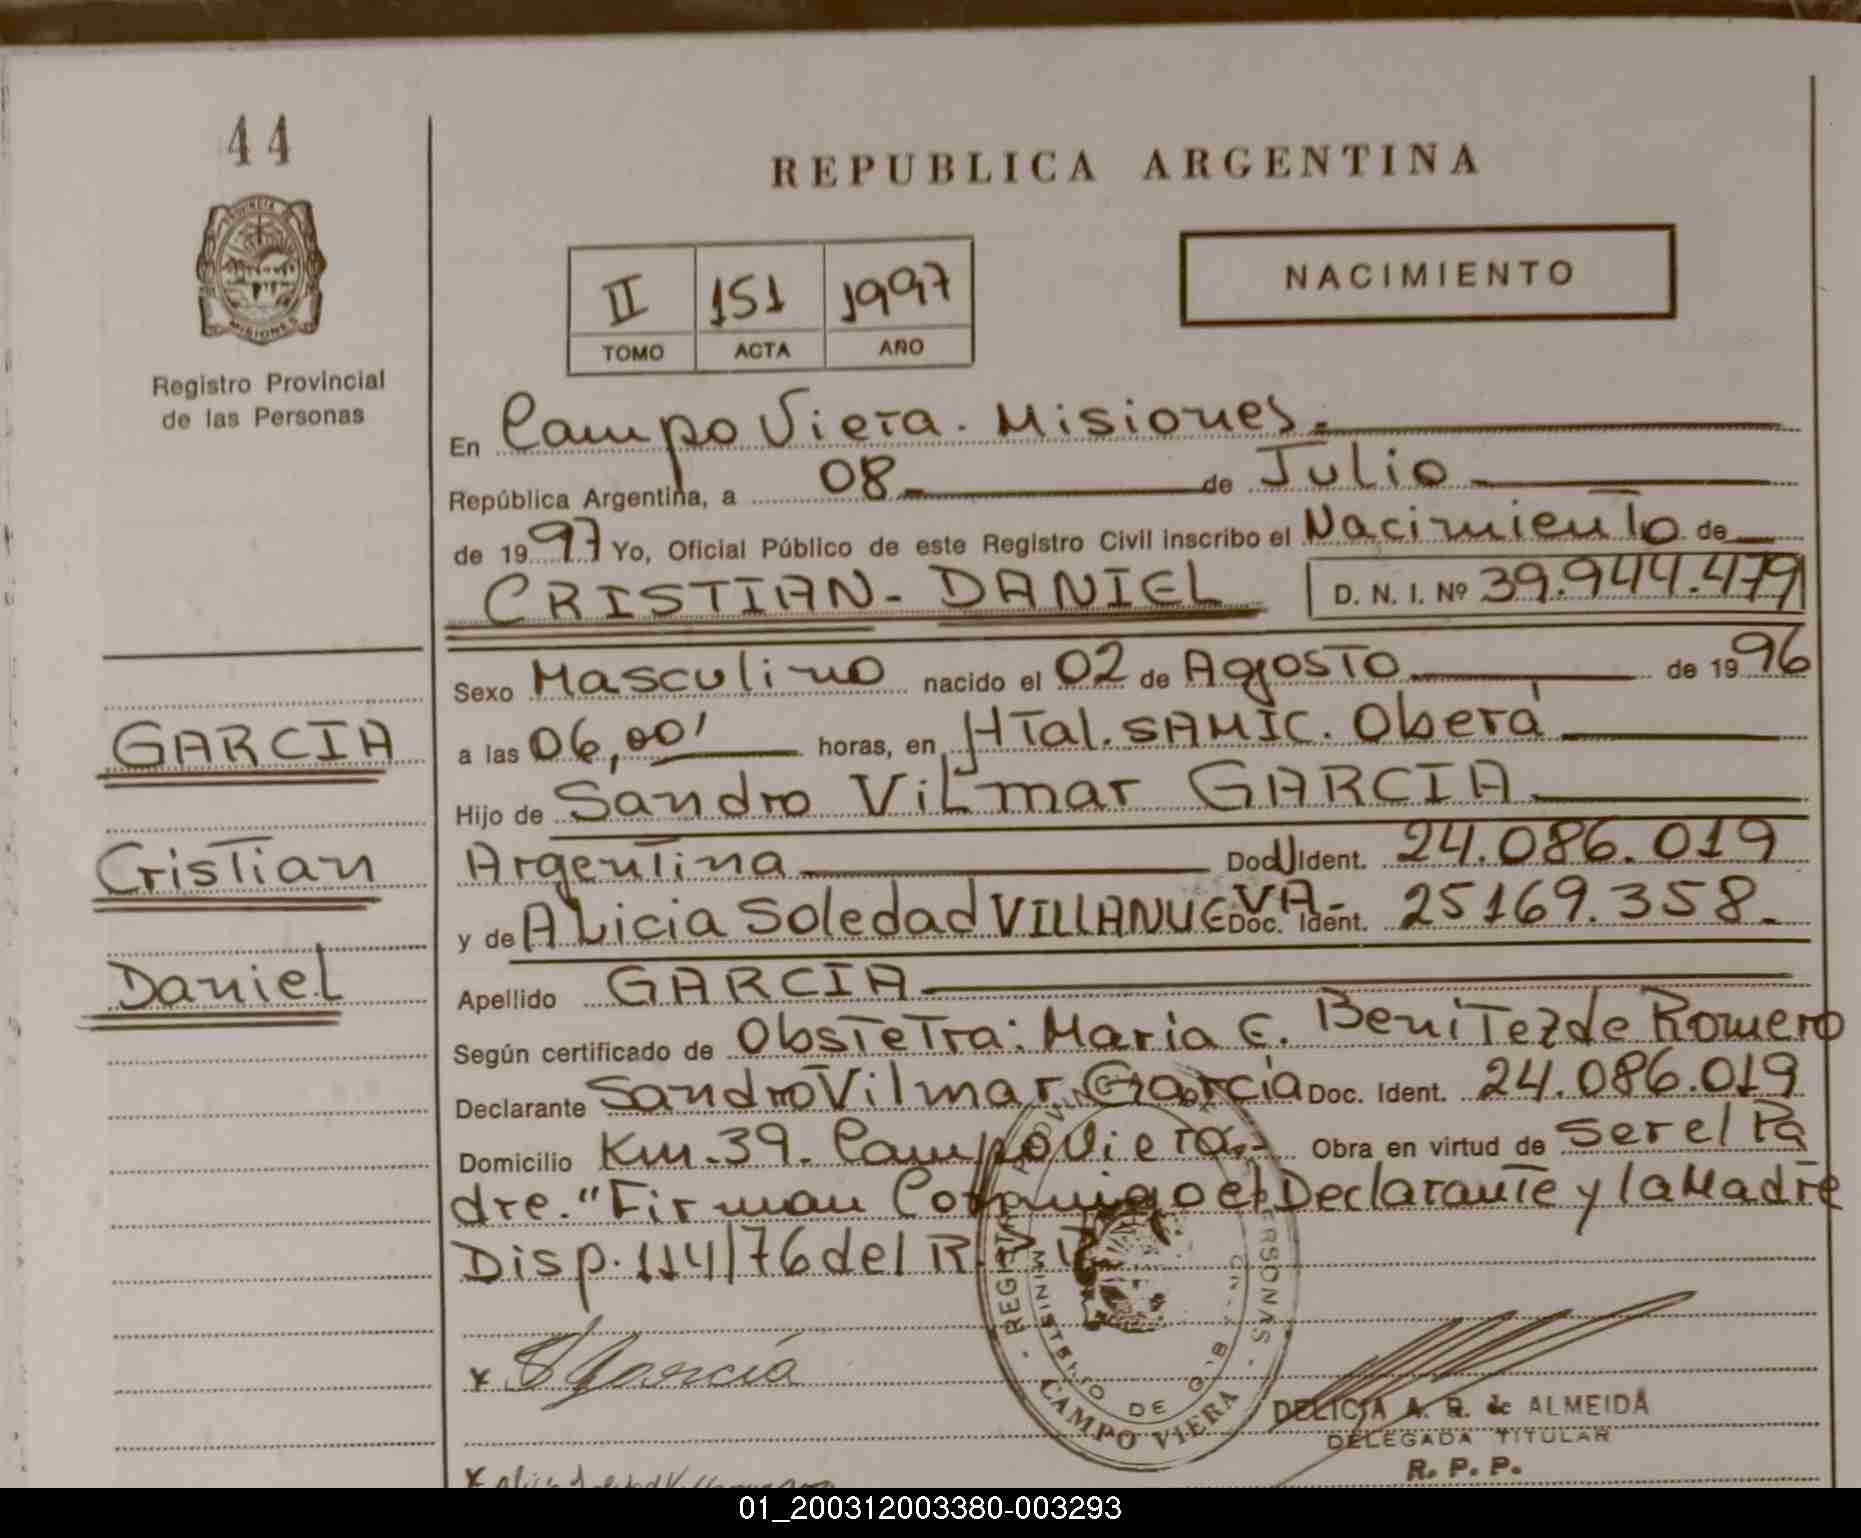 44
PROVINCIA DE
MISIONES
Registro Provincial
de las Personas
GARCIA
Cristian
Daniel
REPUBLICA ARGENTINA
II 151 1997
TOMO ACTA AÑO
NACIMIENTO
En Campo Viera. Misiones.
República Argentina, a 08 de Julio
de 1997 Yo, Oficial Público de este Registro Civil inscribo el Nacimiento de
CRISTIAN - DANIEL D. N. I. Nº 39.944.479
Sexo Masculino nacido el 02 de Agosto de 1996
a las 06,00' horas, en HTal. SAMIC. Oberá
Hijo de Sandro Vilmar GARCIA
Argentina Doc. Ident. 24.086.019
y de Alicia Soledad VILLANUEVA - Doc. Ident. 25169.358.
Apellido GARCIA
Según certificado de Obstetra: María E. Benitez de Romero
Declarante Sandro Vilmar García Doc. Ident. 24.086.019
Domicilio Km. 39. Campo Viera. Obra en virtud de ser el Pa
dre. "Firman Conmigo el Declarante y la Madre
Disp. 114/76 del R.
x SGarcia
CAMPO VIERA
DELICIA A. R. de ALMEIDA
DELEGADA TITULAR
R. P. P.
01_200312003380-003293